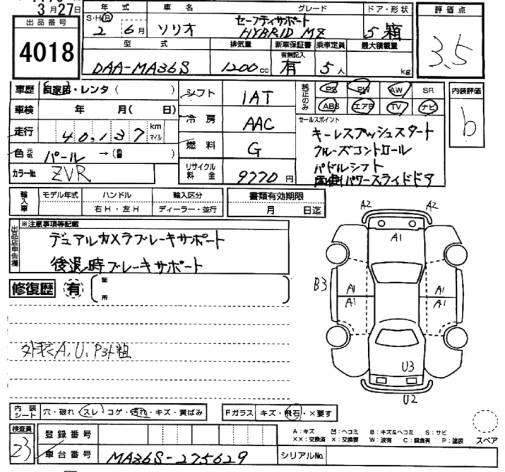 3月27日
年式 車名 グレード ドア・形状 評価点
出品番号 4018
S・H・R 2 年 6 月 ソリオ セーフティサポート HYBRID MZ 5 箱 3.5
型式 排気量 新車保証書 乗車定員 最大積載量
DAA-MA36S 1200 cc 有無記入 有 5 人 kg
車歴 自家用・レンタ( ) シフト 1AT 純正のみ PS PW AW SR 内装評価
車検 年 月( 日) 冷房 AAC ABS エアB TV ナビ b
走行 40,137 km マイル
セールスポイント
キーレスプッシュスタート
色 元色 パール →( 替) 燃料 G クルーズコントロール
カラー№ ZVR リサイクル料金 9770 円 パドルシフト
両側パワースライドドア
輸入車 モデル年式 ハンドル 輸入区分 書類有効期限
年 右H・左H ディーラー・並行 月 日迄
出品店申告欄 ※注意事項等記載
デュアルカメラブレーキサポート
後退時ブレーキサポート
修復歴 有 箇所
A2 A2
A1
B3 A1 A1
A1 A1
外装A,U,
U3
U2
内装シート 穴・破れ・スレ・コゲ・汚れ・キズ・黄ばみ Fガラス キズ・飛石・×要す
検査員 23 登録番号
A:キズ 凹:ヘコミ B:キズ&ヘコミ S:サビ
XX:交換済 X:交換要 W:波有 C:腐食有 P:塗装
スペア
車台番号 MA36S-275629 シリアルNo.